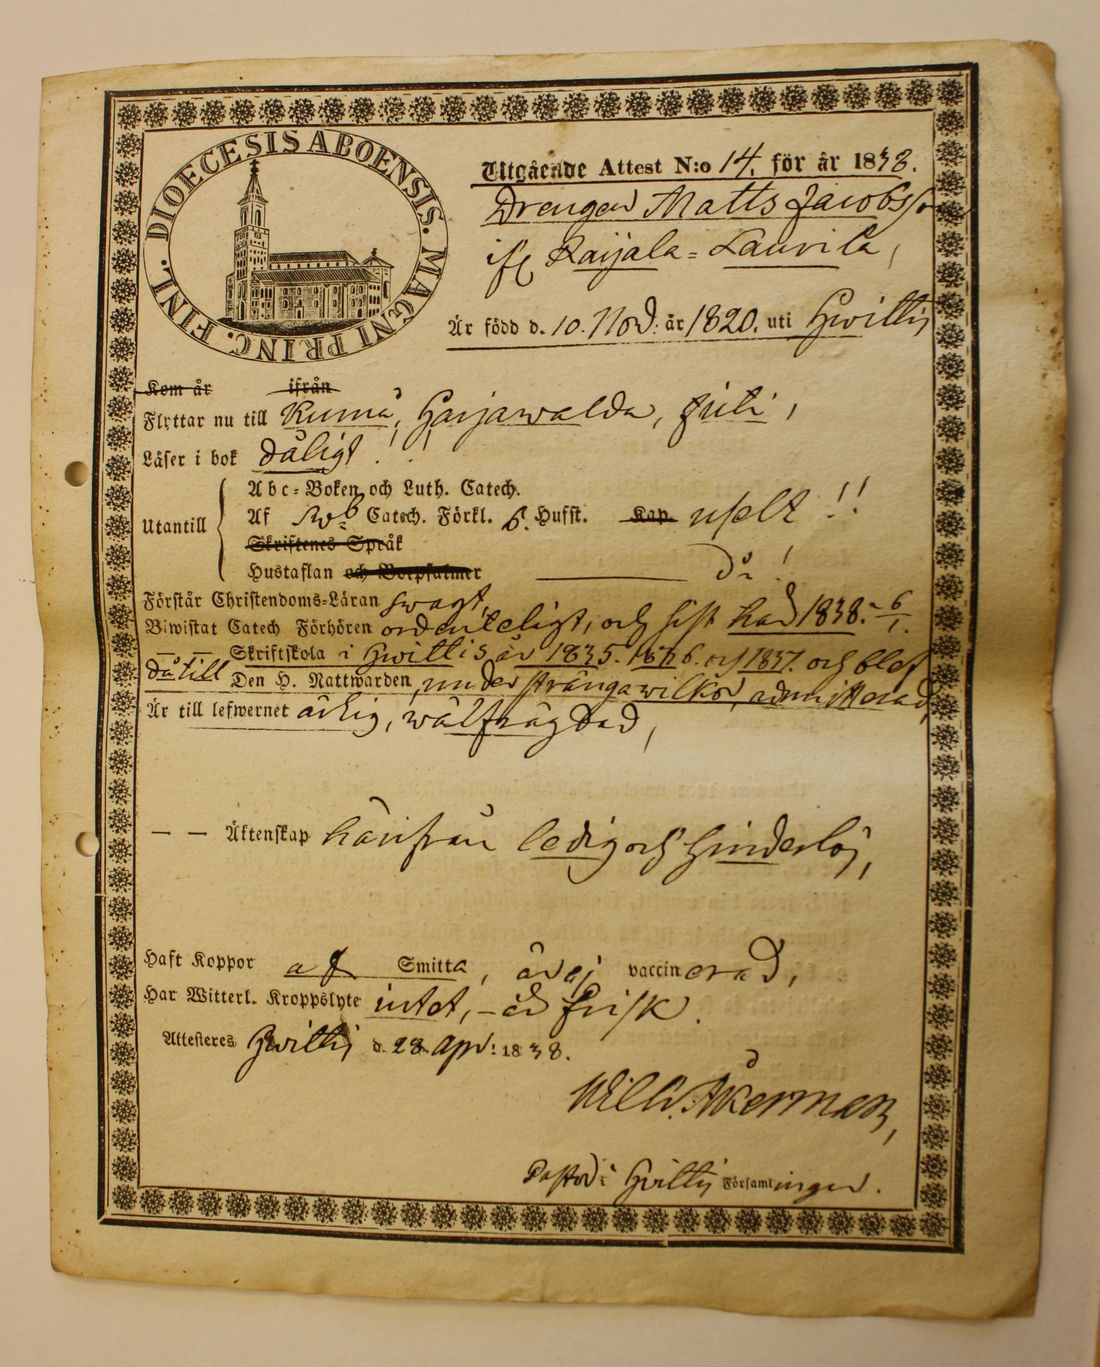 DIOECESIS ABOENSIS. MAGNI PRINC. FINL.
Utgående Attest N:o 14. för år 1838.
Drengen Matts Jacobsson
ifr Raijala = Lauvila,
Är född d. 10. Nov: år 1820. uti Hvittis
Kom år ifrån
Flyttar nu till Kumå, Harjawalda, Juti,
Läser i bok dåligt!
Abc-Boken och Luth. Catech.
Utantill Af Sweb Catech. Förkl. 6. Hufst. Kap. uselt!!
Skriftenes Språk
Hustaflan och Botpsalmer d:o!
Förstår Christendoms-Läran swagt,
Biwistat Catech Förhören ordenteligt, och sist 1838.
— — Skriftskola i Hvittis år 1835. 1836. och 1837. och blef
då till Den H. Nattwarden, under stränga wilkor, admitterad,
Är till lefwernet ärlig, wälfrägdad,
— — Äktenskap härifrån ledig och hinderlös,
Haft Koppor af Smitta, är ej vaccinerad,
Har Witterl. Kroppslyte intet, – är frisk.
Attesteras Hvittis d. 28. Apr: 1838.
Wilh. Åkerman,
Pastor i Hvittis Församlingen.